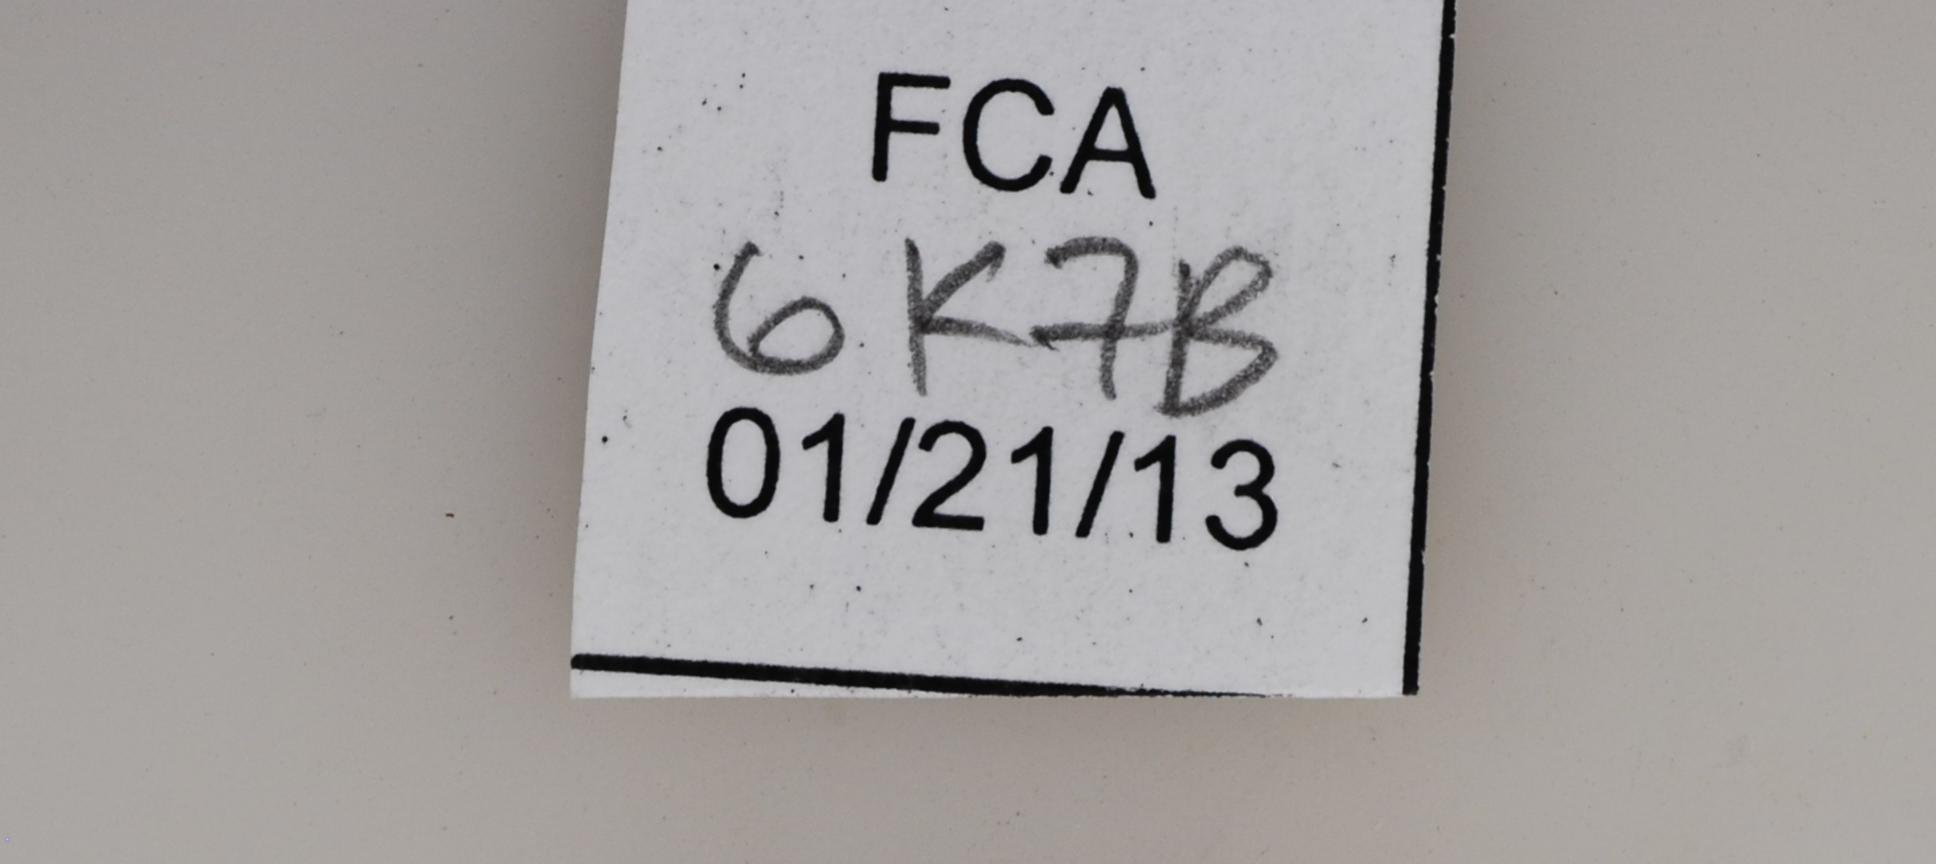 FCA
6K7B
01/21/13